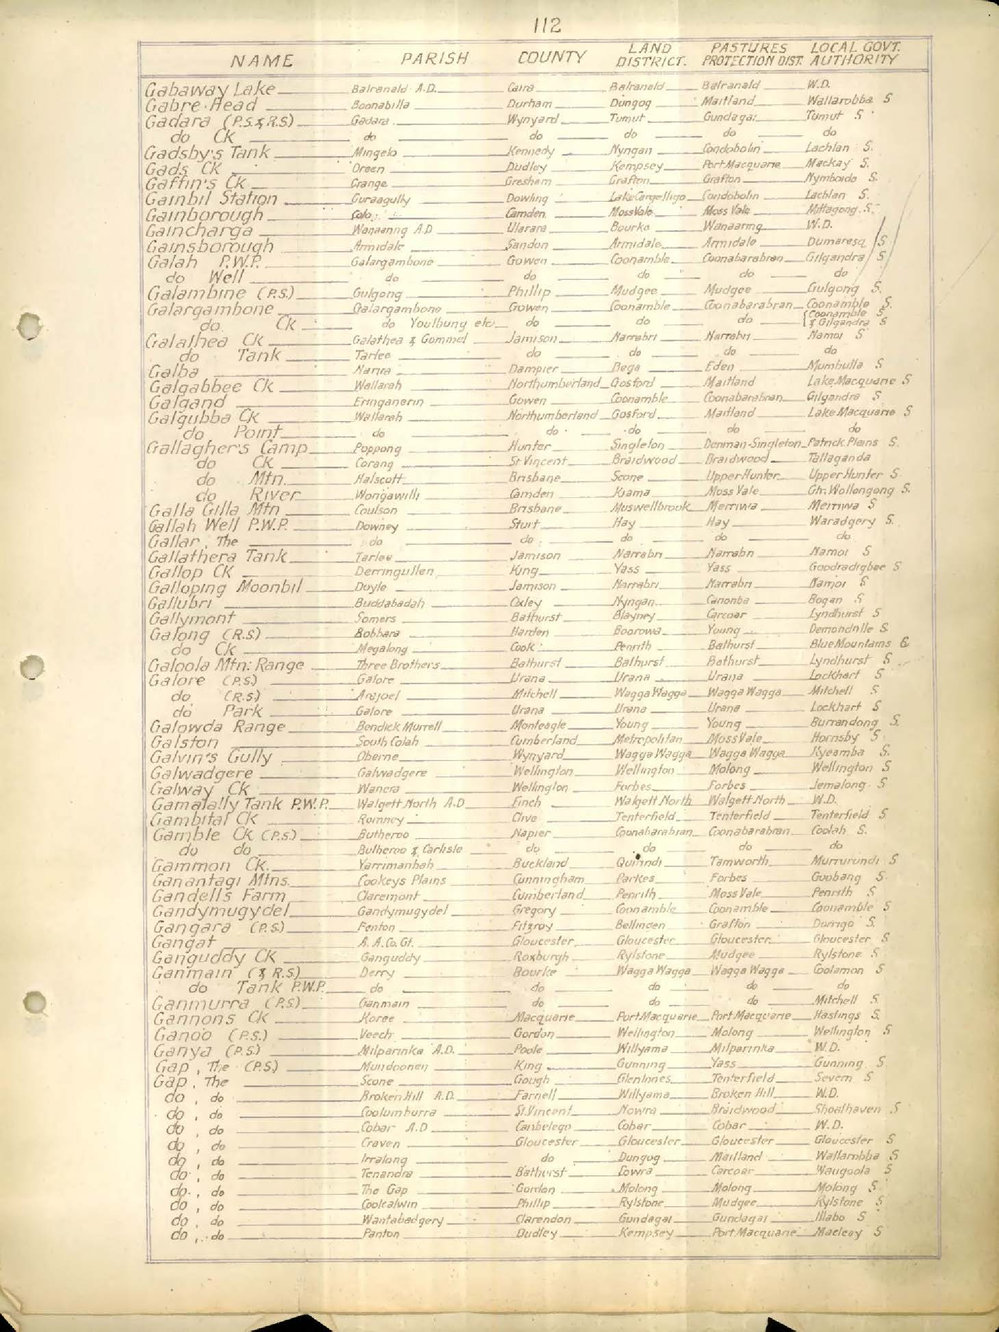 112
NAME PARISH COUNTY LAND DISTRICT. PASTURES PROTECTION DIST. LOCAL GOVT. AUTHORITY
Gabaway Lake Balranald A.D. Caira Balranald Balranald W.D.
Gabre Head Boonabilla Durham Dungog Maitland Wallarobba S
Gadara (P.S. & R.S) Gadara Wynyard Tumut Gundagai Tumut S
do Ck do do do do do
Gadsby's Tank Mingelo Kennedy Nyngan Condobolin Lachlan S.
Gads Ck Dudley Kempsey Port Macquarie Macleay S.
Gaffin's Ck Grange Gresham Grafton Grafton Nymboida S
Gainbil Station Guraagully Dowling Lake Cargelligo Condobolin Lachlan S.
Gainborough Colo Camden Moss Vale Moss Vale Mittagong S.
Gaincharga Wanaaring A.D Ularara Bourke Wanaaring W.D.
Gainsborough Armidale Sandon Armidale Armidale Dumaresq S
Galah P.W.P. Galargambone Gowen Coonamble Coonabarabran Gilgandra S
do Well do do do do do
Galambine (P.S.) Gulgong Phillip Mudgee Mudgee Gulgong S.
Galargambone Galargambone Gowen Coonamble Coonabarabran Coonamble S
do Ck do Youlbung etc. do do do {Coonamble S & Gilgandra S
Galathea Ck Galathea & Gommel Jamison Narrabri Narrabri Namoi S
do Tank Tarlee do do do do
Galba Dampier Bega Eden Mumbulla S
Galgabbee Ck Wallarah Northumberland Gosford Maitland Lake Macquarie S
Galgand Eringanerin Gowen Coonamble Coonabarabran Gilgandra S
Galgubba Ck Wallarah Northumberland Gosford Maitland Lake Macquarie S
do Point do do do do do
Gallagher's Camp Poppong Hunter Singleton Denman-Singleton Patrick Plains S.
do Ck Corang St Vincent Braidwood Braidwood Tallaganda
do Mtn. Halscott Brisbane Scone Upper Hunter Upper Hunter S
do River Wongawilli Camden Kiama Moss Vale Gtr. Wollongong S.
Galla Gilla Mtn Coulson Brisbane Muswellbrook Merriwa Merriwa S
Gallah Well P.W.P. Downey Sturt Hay Hay Waradgery S
Gallar, The do do do do do
Gallathera Tank Tarlee Jamison Narrabri Narrabri Namoi S
Gallop Ck Derringullen King Yass Yass Goodradigbee S
Galloping Moonbil Doyle Jamison Narrabri Narrabri Namoi S
Gallubri Buddabadah Oxley Nyngan Canonba Bogan S
Gallymont Somers Bathurst Blayney Carcoar Lyndhurst S
Galong (R.S) Bobbara Harden Boorowa Young Demondrille S
do Ck Megalong Cook Penrith Bathurst Blue Mountains C
Galoola Mtn. Range Three Brothers Bathurst Bathurst Bathurst Lyndhurst S
Galore (P.S) Galore Urana Urana Urana Lockhart S
do (R.S) Arajoel Mitchell Wagga Wagga Wagga Wagga Mitchell S
do Park Galore Urana Urana Urana Lockhart S
Galowda Range Bendick Murrell Monteagle Young Young Burrangong S.
Galston South Colah Cumberland Metropolitan Moss Vale Hornsby S
Galvin's Gully Oberne Wynyard Wagga Wagga Wagga Wagga Kyeamba S
Galwadgere Galwadgere Wellington Wellington Molong Wellington S
Galway Ck Wanera Wellington Forbes Forbes Jemalong S
Gamalally Tank P.W.P. Walgett North A.D Finch Walgett North Walgett North W.D.
Gambital Ck Romney Clive Tenterfield Tenterfield Tenterfield S
Gamble Ck (P.S.) Butheroo Napier Coonabarabran Coonabarabran Coolah S.
do do Butheroo & Carlisle do do do do
Gammon Ck. Yarrimanbah Buckland Quirindi Tamworth Murrurundi S
Ganantagi Mtns. Cookeys Plains Cunningham Parkes Forbes Goobang S
Gandells Farm Claremont Cumberland Penrith Moss Vale Penrith S
Gandymugydel Gandymugydel Gregory Coonamble Coonamble Coonamble S
Gangara (P.S.) Fenton Fitzroy Bellingen Grafton Dorrigo S.
Gangat A. A. Co. Gt. Gloucester Gloucester Gloucester Gloucester S
Ganguddy Ck Ganguddy Roxburgh Rylstone Mudgee Rylstone S
Ganmain (& R.S) Derry Bourke Wagga Wagga Wagga Wagga Coolamon S
do Tank P.W.P. do do do do do
Ganmurra (P.S) Ganmain do do do Mitchell S
Gannons Ck Koree Macquarie Port Macquarie Port Macquarie Hastings S
Ganoo (P.S.) Veech Gordon Wellington Molong Wellington S
Ganya (P.S.) Milparinka A.D. Poole Willyama Milparinka W.D.
Gap, The (P.S.) Mundoonen King Gunning Yass Gunning S
Gap, The Scone Gough Glen Innes Tenterfield Severn S
do, do Broken Hill A.D. Farnell Willyama Broken Hill W.D.
do, do Coolumburra St. Vincent Nowra Braidwood Shoalhaven S
do, do Cobar A.D Canbelego Cobar Cobar W.D.
do, do Craven Gloucester Gloucester Gloucester Gloucester S
do, do Irralong do Dungog Maitland Wallarobba S
do, do Tenandra Bathurst Cowra Carcoar Waugoola S
do, do The Gap Gordon Molong Molong Molong S
do, do Coolcalwin Phillip Rylstone Mudgee Rylstone S
do, do Wantabadgery Clarendon Gundagai Gundagai Illabo S
do, do Panton Dudley Kempsey Port Macquarie Macleay S